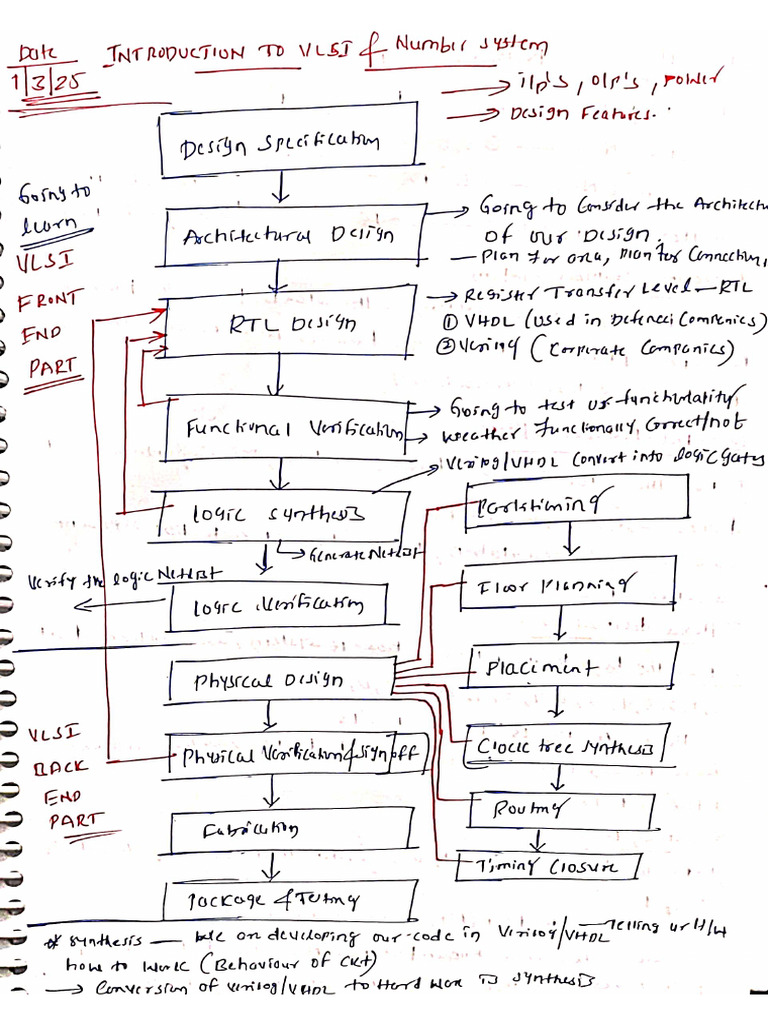 Date INTRODUCTION TO VLSI & Number system
1/3/25
→ i/p's, o/p's, power
→ Design Features.
Design Specification
Going to
learn
VLSI
FRONT
END
PART
Architectural Design
→ Going to Consider the Architectu
of our Design.
— Plan for area, Plan for Connection,
RTL Design
→ Register Transfer Level — RTL
① VHDL (Used in Defence Companies)
② Verilog (Corporate Companies)
Functional Verification
→ Going to test our functionality
→ weather Functionally Correct/not
→ Verilog/VHDL Convert into logic gates
Logic Synthesis
→ Generate Netlist
Verify the logic Netlist
Logic Verification
Partitioning
Floor Planning
Placement
Clock tree Synthesis
Routing
Timing Closure
Physical Design
VLSI
BACK
END
PART
Physical Verification & Sign off
Fabrication
Package & Testing
* Synthesis — We on developing our code in Verilog/VHDL — Telling ur H/W
how to work (Behaviour of CKT)
→ Conversion of Verilog/VHDL to Hard War is synthesis